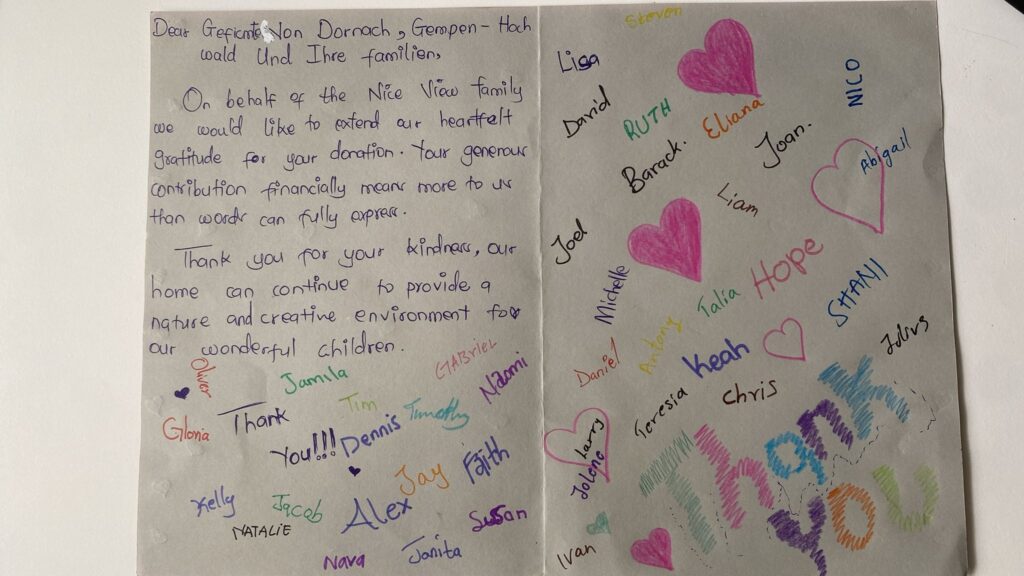 Dear Gefirmte Von Dornach, Gempen-Hoch
wald Und Ihre familien,
On behalf of the Nice View family
we would like to extend our heartfelt
gratitude for your donation. Your generous
contribution financially means more to us
than words can fully express.
Thank you for your kindness, our
home can continue to provide a
nature and creative environment for
our wonderful children.
Oliver
Jamila
GABRIEL
Naomi
Gloria
Thank
You!!!
Tim
Timothy
Dennis
Jay
Faith
Kelly
NATALIE
Jacob
Alex
Susan
Nava
Janita
Steven
Lisa
David
RUTH
Eliana
NICO
Barack.
Joan.
Abigail
Liam
Joel
Michelle
Talia
Hope
SHANII
Daniel
Antony
Keah
Julius
Teresia
Chris
Larry
Jolene
Ivan
Thank
you